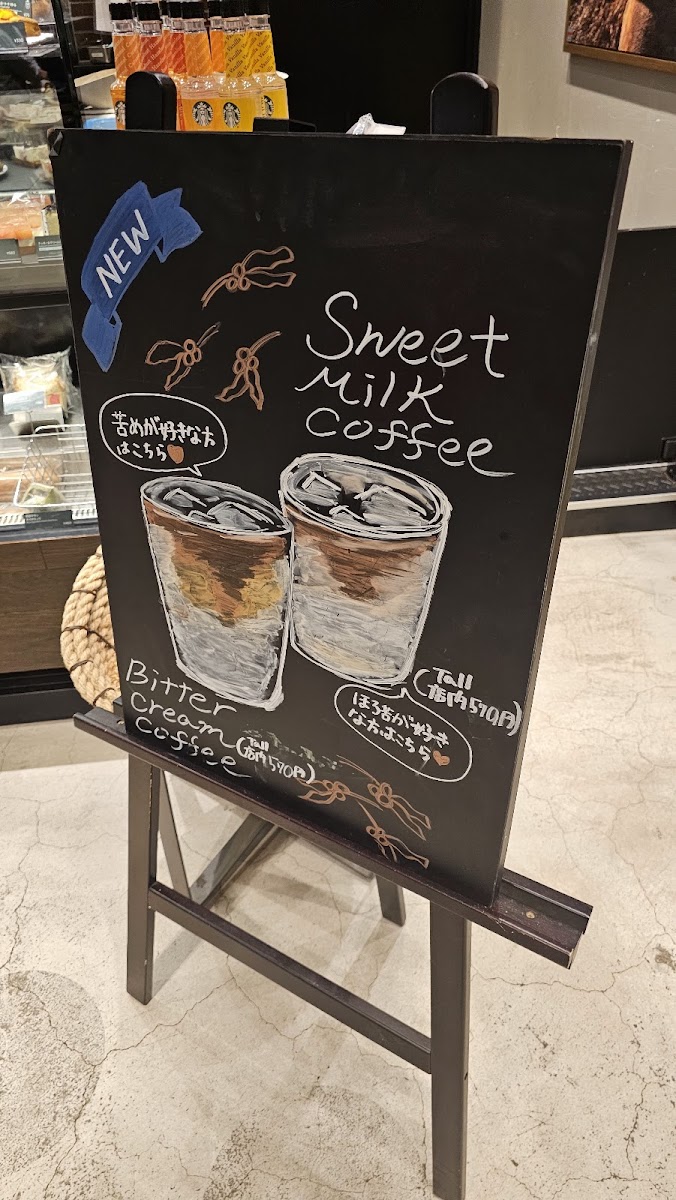 NEW
Sweet
Milk
coffee
苦めが好きな方
はこちら
Bitter
cream
coffee
(Tall
店内570円)
(Tall
店内570円)
ほろ苦が好き
な方はこちら